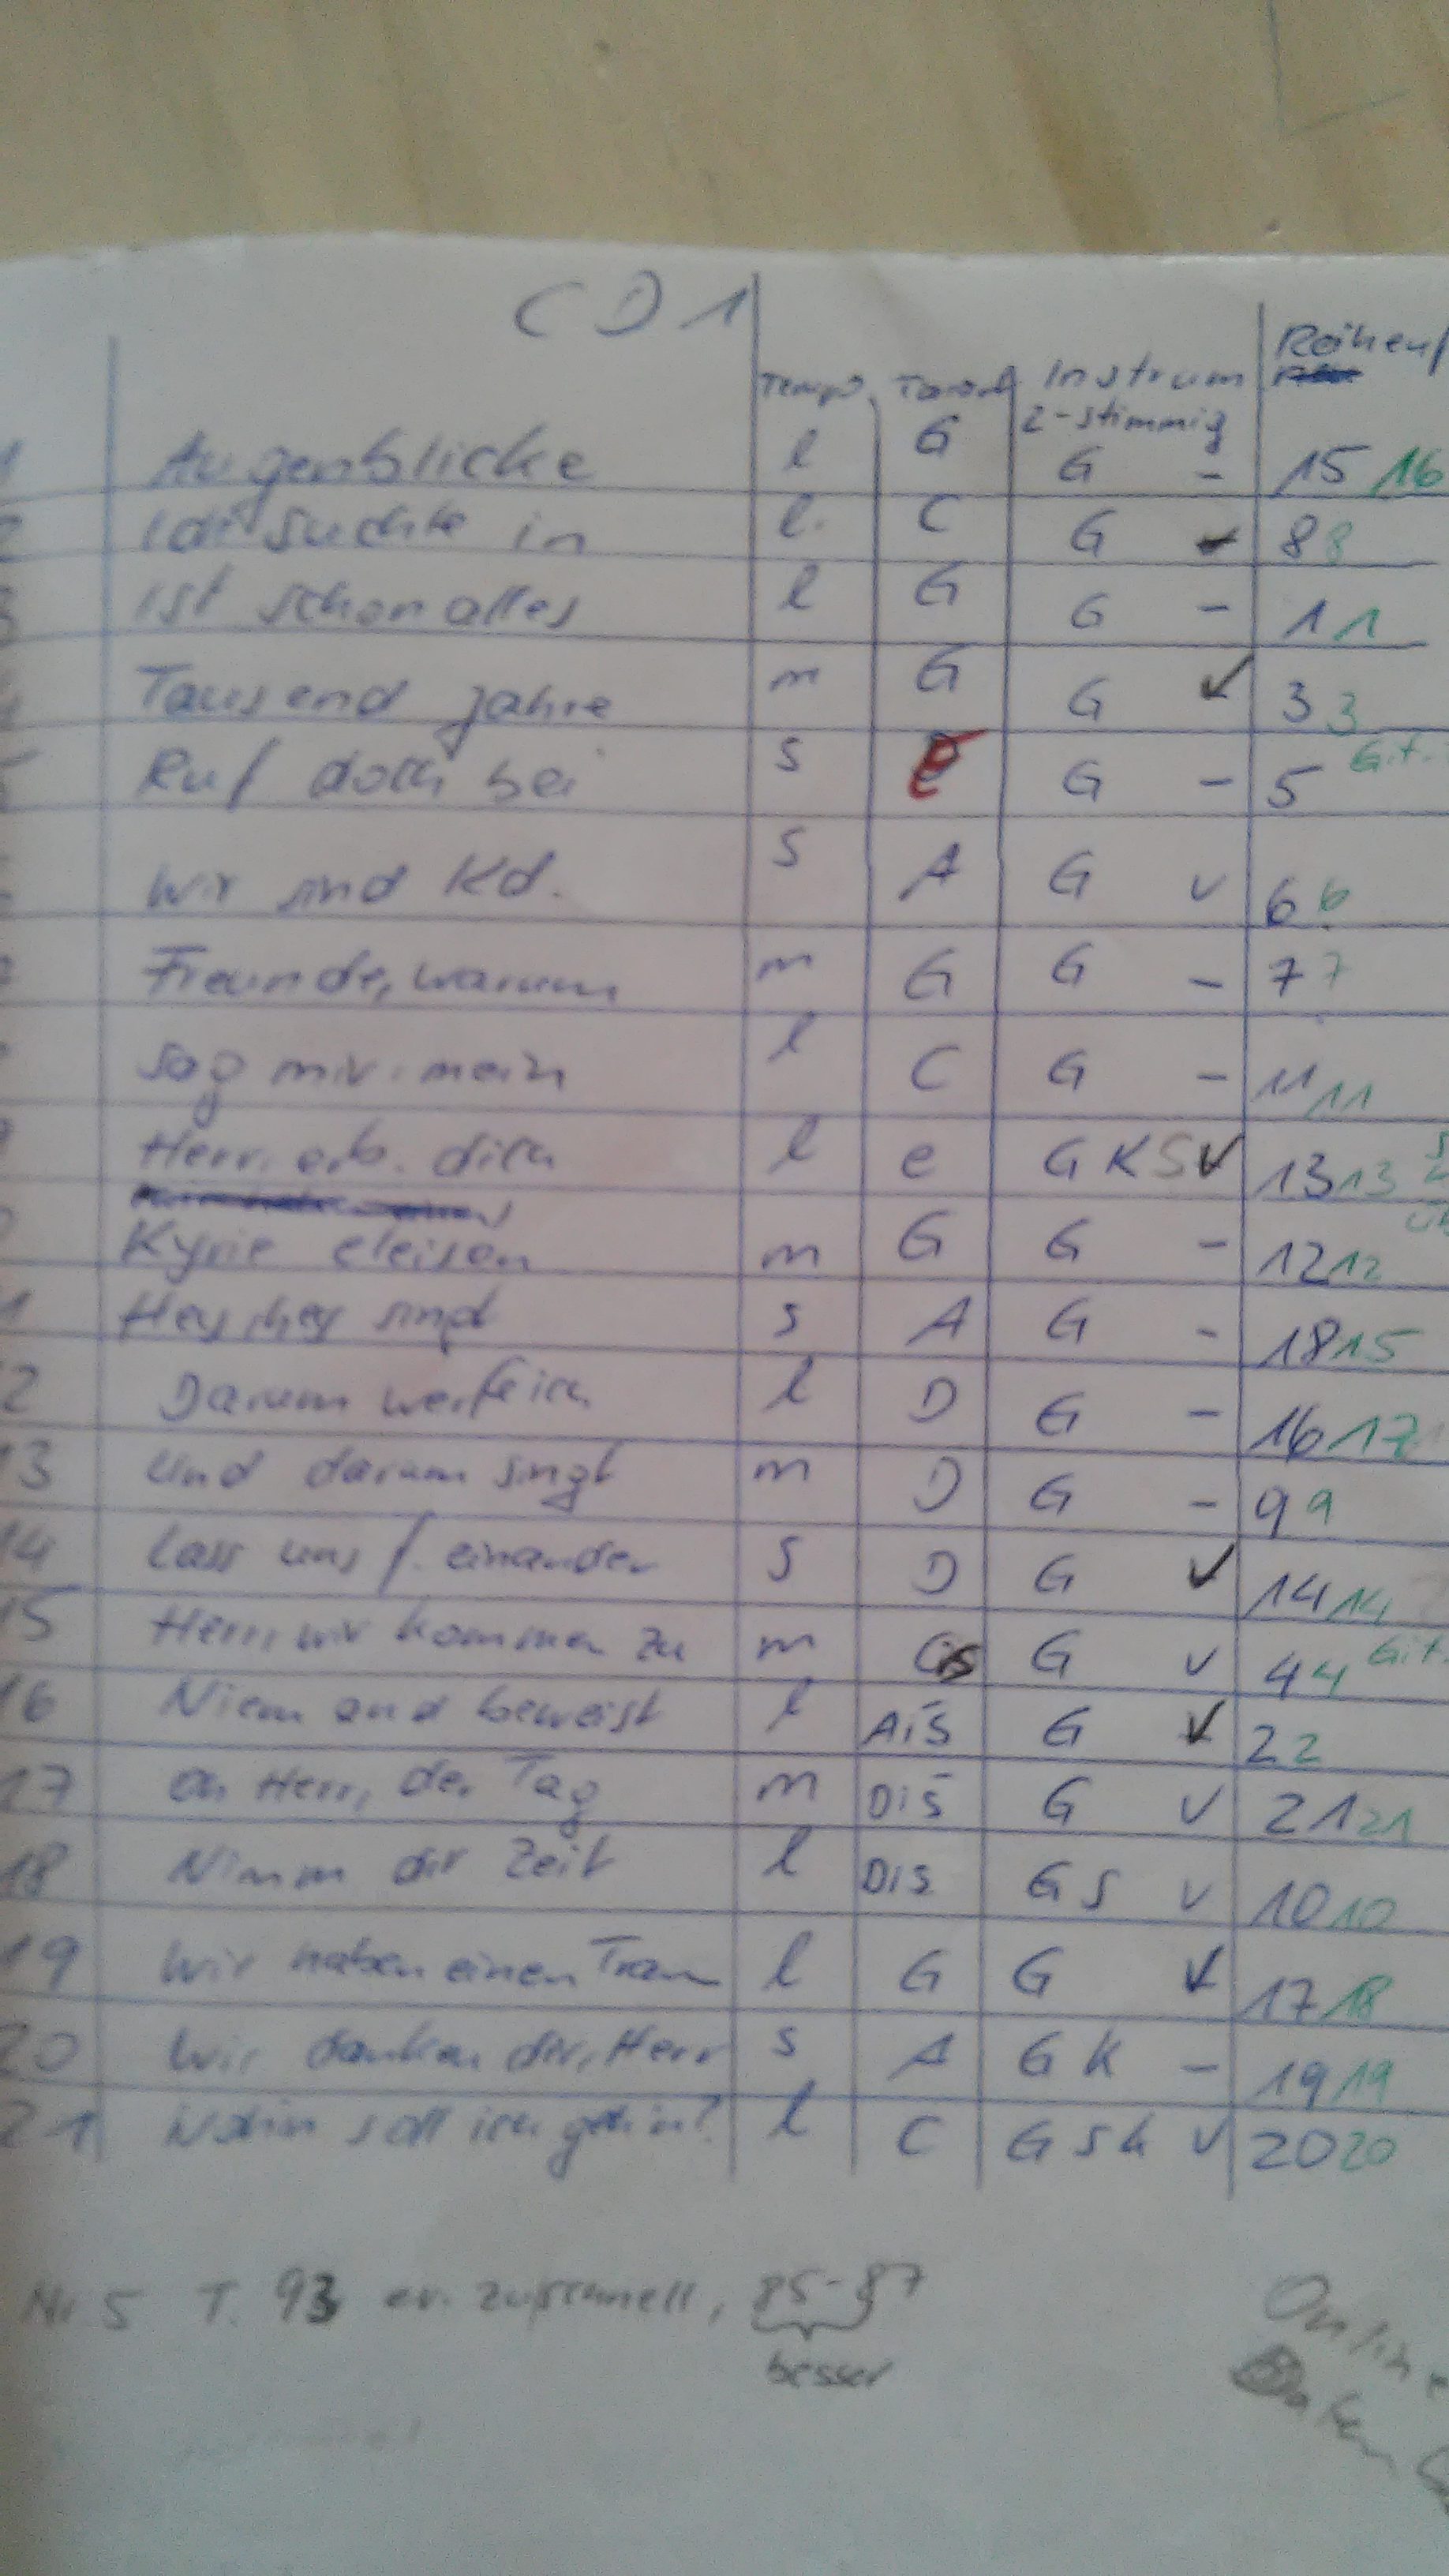 CD1
Tempo Tonart Instrum Reihenf
2-stimmig
1 Augenblicke l G G - 15 16
2 Ich suchte in l. C G ✓ 8 8
3 ist schon alles l G G - 1 1
4 Tausend Jahre m G G ✓ 3 3
5 Ruf doch bei s G - 5 Git.
Wir sind Kd. s A G v 6 6
7 Freunde, warum m G G - 7 7
Sag mir, mein l C G - 11 11
9 Herr, erb. dich l e G K S ✓ 13 13
Kyrie eleison m G G - 12 12
1 Hey, hey sind s A G - 18 15
2 Darum werfe ich l D G - 16 17
13 Und darum singt m D G - 9 9
14 Lass uns f. einander s D G ✓ 14 14
15 Herr, wir kommen zu m Cis G v 4 4 Git.
16 Niemand beweist l Ais G ✓ 2 2
17 Oh Herr, der Tag m Dis G v 21 21
18 Nimm dir Zeit l Dis G S v 10 10
19 Wir haben einen Traum l G G ✓ 17 18
20 Wir danken dir, Herr s A G K - 19 19
21 Wohin soll ich gehn? l C G S K v 20 20
Nr 5 T. 93 ev. zu schnell, 85-87
besser